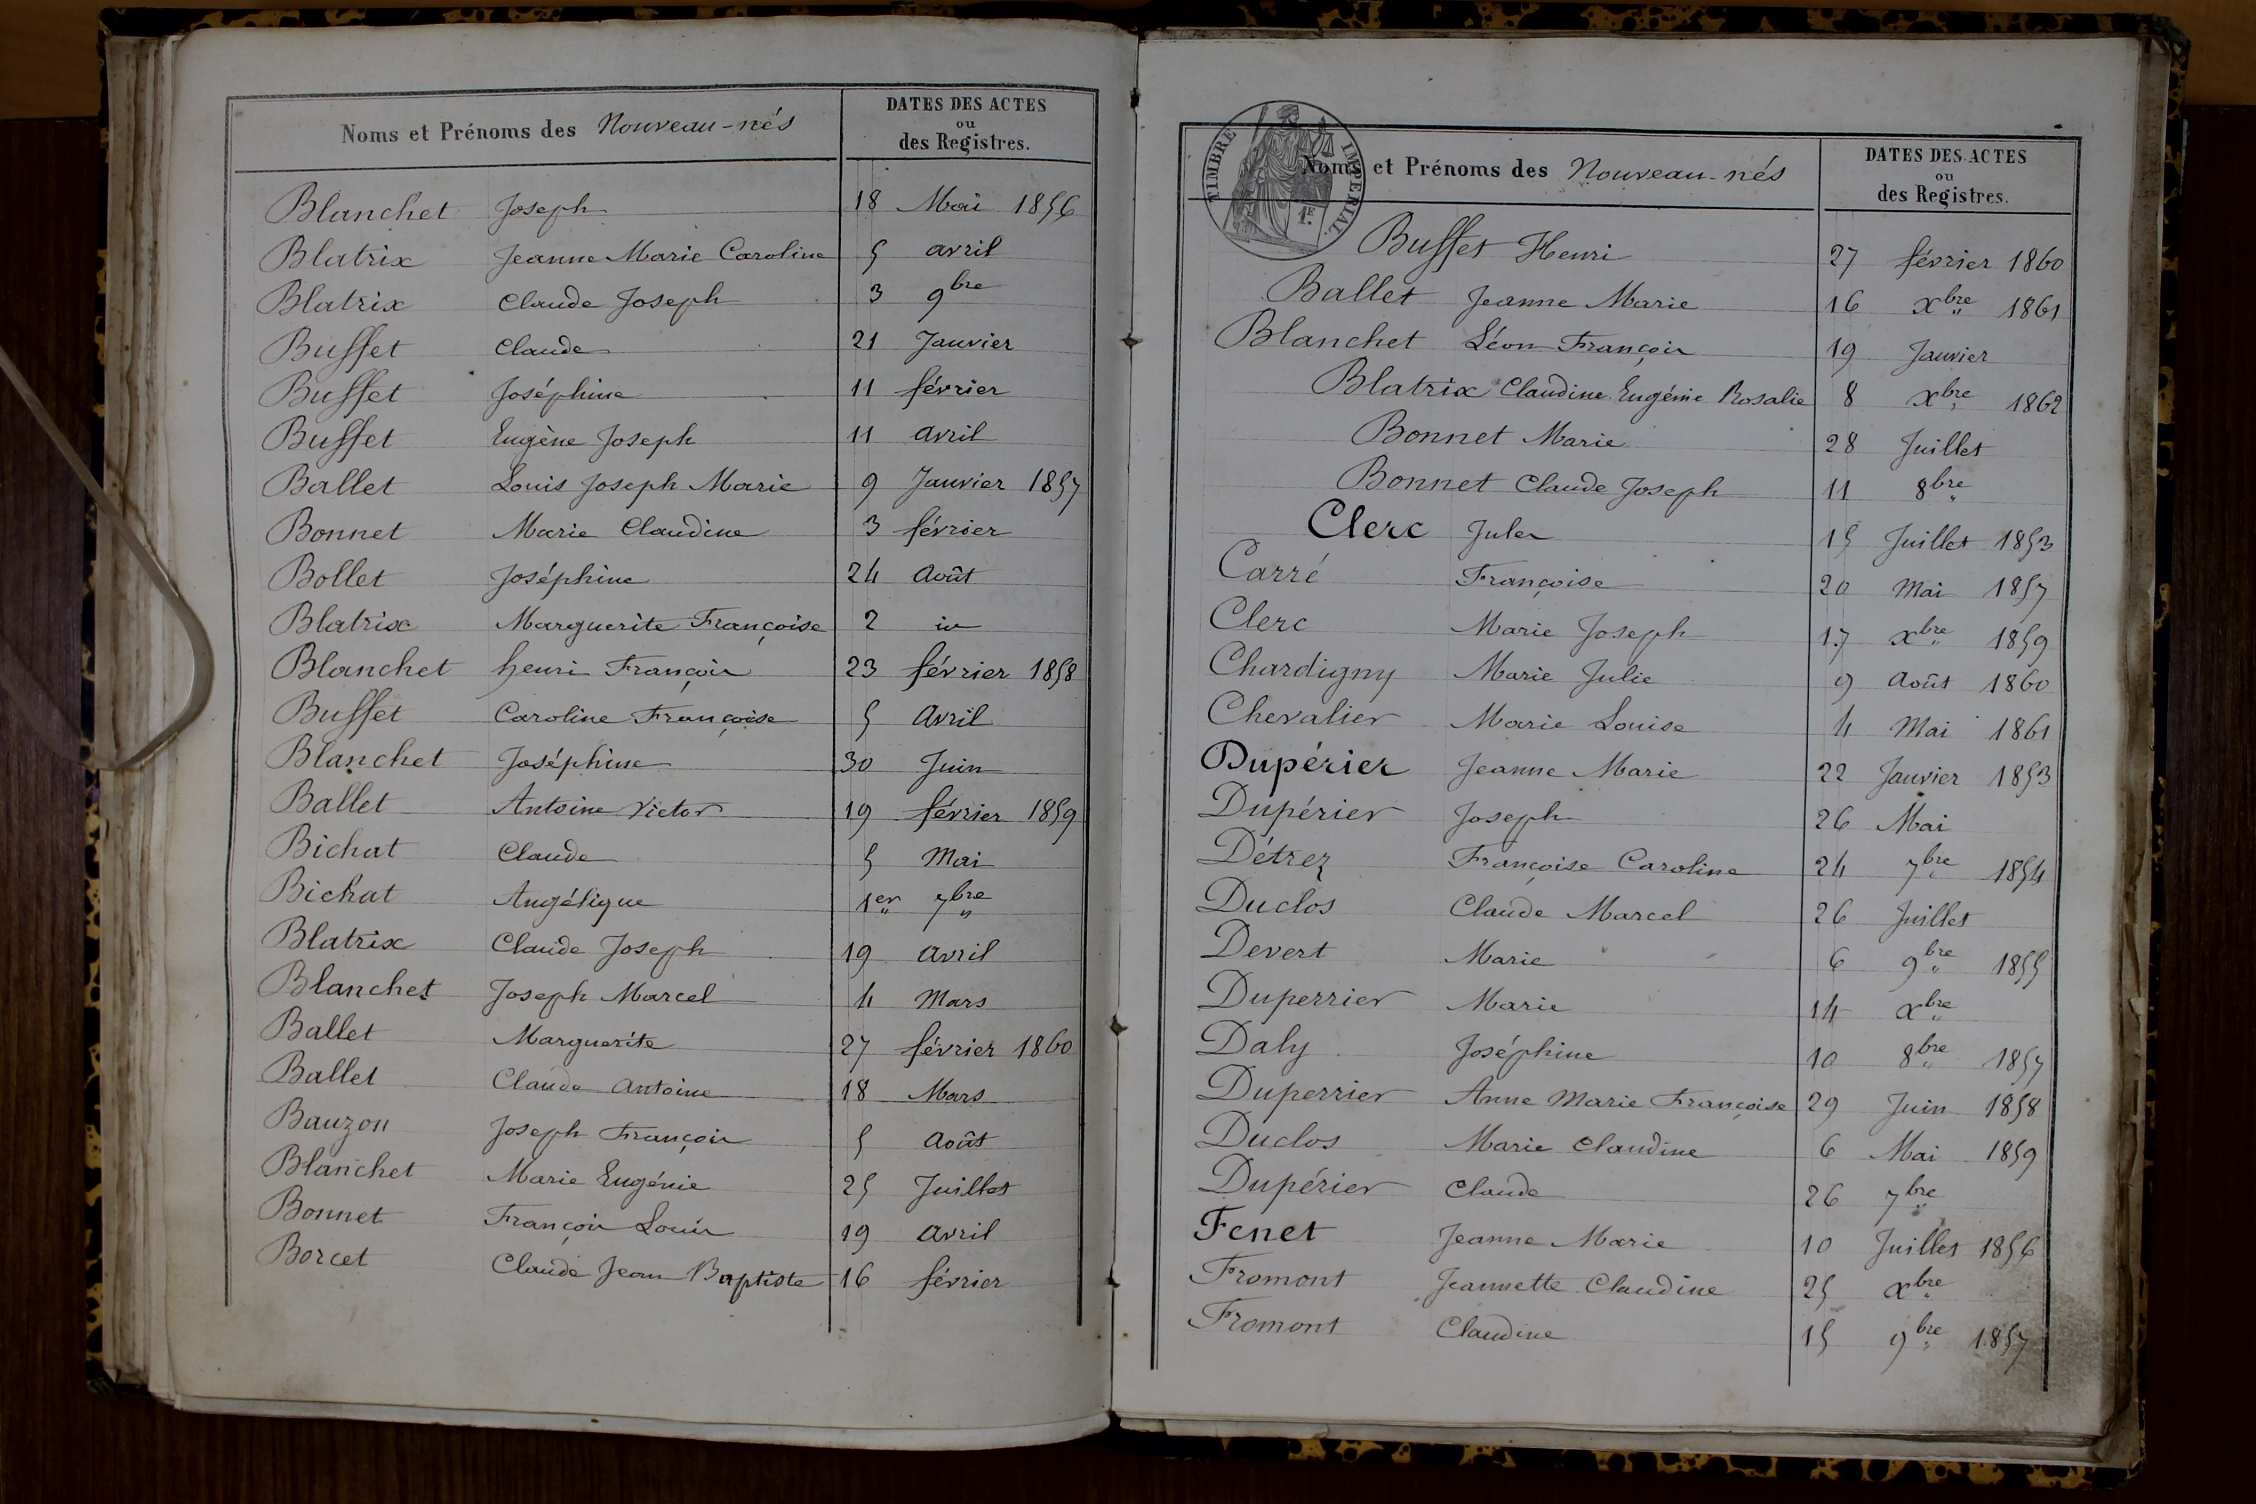 Noms et Prénoms des Nouveau-nés
DATES DES ACTES
ou
des Registres.
Blanchet Joseph 18 Mai 1856
Blatrix Jeanne Marie Caroline 5 avril
Blatrix Claude Joseph 3 9bre
Buffet Claude 21 Janvier
Buffet Joséphine 11 février
Buffet Eugène Joseph 11 avril
Ballet Louis Joseph Marie 9 Janvier 1857
Bonnet Marie Claudine 3 février
Bollet Joséphine 24 Août
Blatrix Marguerite Françoise 2 id
Blanchet henri François 23 février 1858
Buffet Caroline Françoise 5 Avril
Blanchet Joséphine 30 Juin
Ballet Antoine Victor 19 février 1859
Bichat Claude 5 Mai
Bichat Angélique 1er 7bre
Blatrix Claude Joseph 19 avril
Blanchet Joseph Marcel 4 Mars
Ballet Marguerite 27 février 1860
Ballet Claude Antoine 18 Mars
Bauzon Joseph François 5 Août
Blanchet Marie Eugénie 25 Juillet
Bonnet François Louis 19 avril
Borcet Claude Jean Baptiste 16 février
TIMBRE IMPERIAL
1E.
Noms et Prénoms des Nouveau-nés
DATES DES ACTES
ou
des Registres.
Buffet Henri 27 février 1860
Ballet Jeanne Marie 16 xbre 1861
Blanchet Léon François 19 Janvier
Blatrix Claudine Eugénie Rosalie 8 xbre 1862
Bonnet Marie 28 Juillet
Bonnet Claude Joseph 11 8bre
Clerc Jules 15 Juillet 1853
Carré Françoise 20 Mai 1857
Clerc Marie Joseph 17 xbre 1859
Chardigny Marie Julie 9 Août 1860
Chevalier Marie Louise 4 Mai 1861
Dupérier Jeanne Marie 22 Janvier 1853
Dupérier Joseph 26 Mai
Détrez Françoise Caroline 24 7bre 1854
Duclos Claude Marcel 26 Juillet
Devert Marie 6 9bre 1855
Duperrier Marie 14 xbre
Daly Joséphine 10 8bre 1857
Duperrier Anne Marie Françoise 29 Juin 1858
Duclos Marie Claudine 6 Mai 1859
Dupérier Claude 26 7bre
Fenet Jeanne Marie 10 Juillet 1856
Fromont Jeannette Claudine 25 xbre
Fromont Claudine 15 9bre 1857